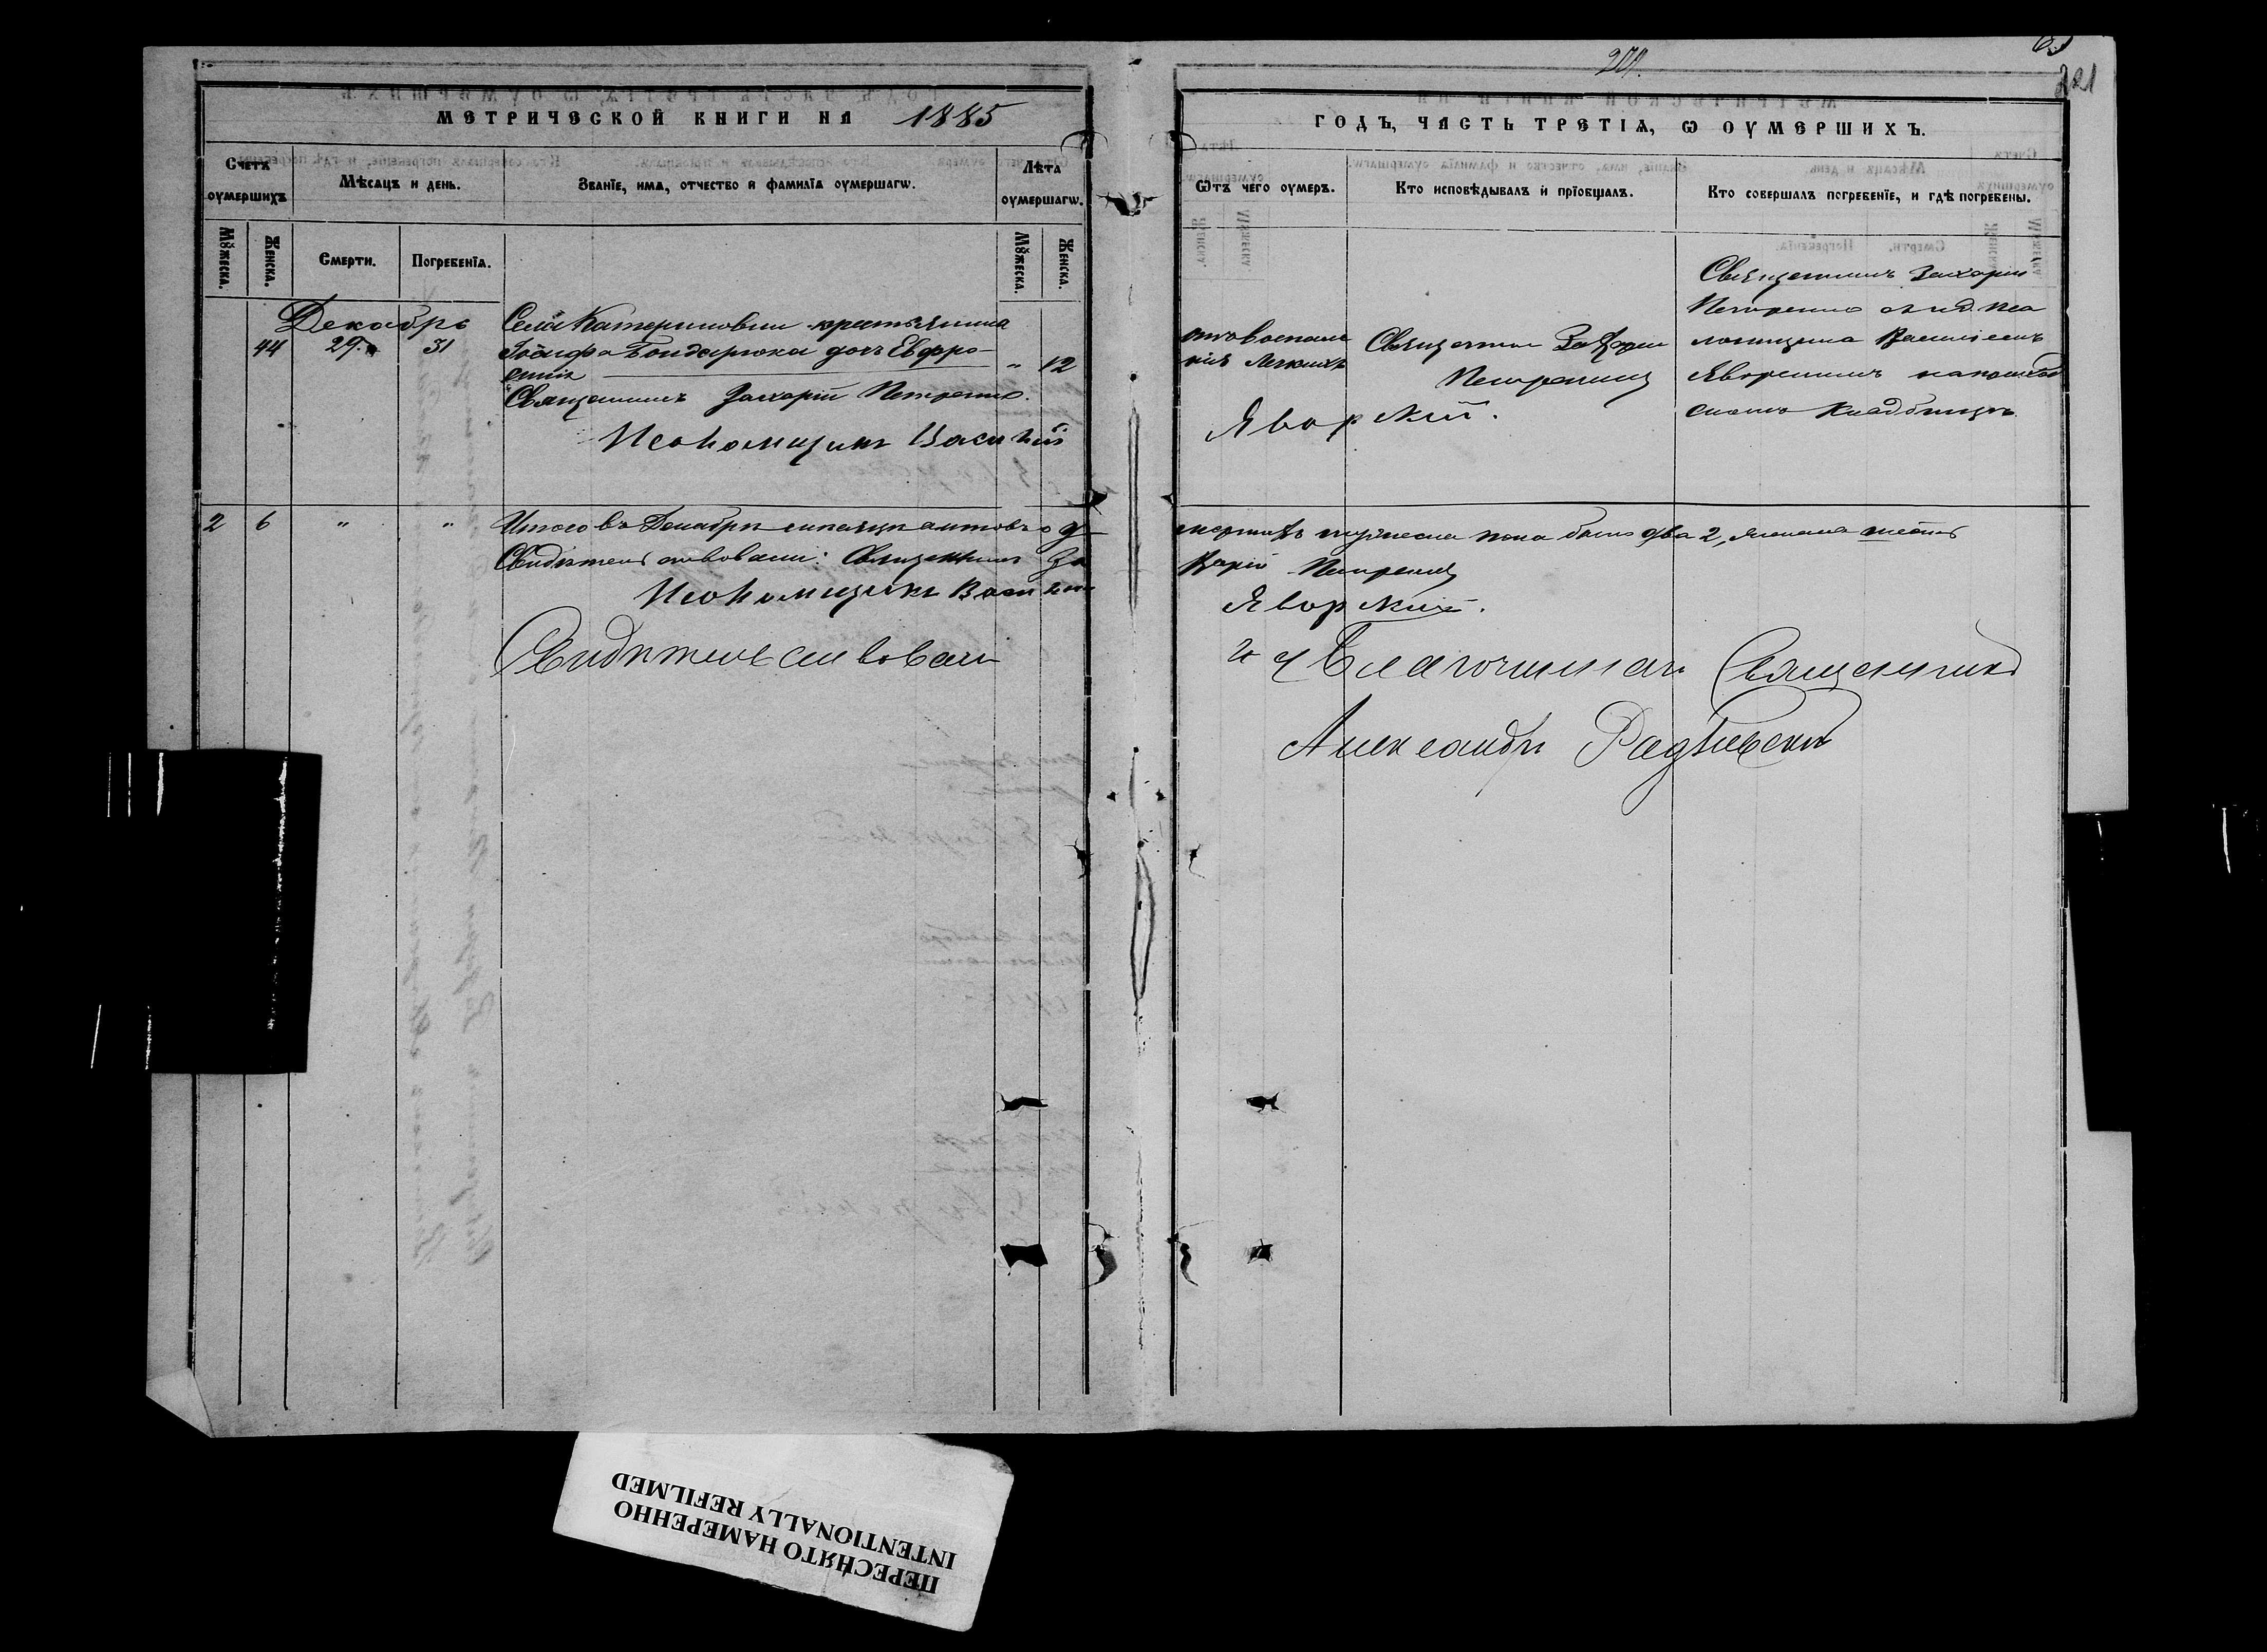 221
МЕТРИЧЕСКОЙ КНИГИ НА 1885
ГОДЪ, ЧАСТЬ ТРЕТІѦ, Ѡ ОУМЕРШИХЪ.
Счетъ оумершихъ
Мѣсяцъ и день.
Званіе, имѧ, отчество и фамилїѧ оумершагѡ.
Лѣта оумершагѡ.
Ѿтъ чего оумеръ.
Кто исповѣдывалъ и прїобщалъ.
Кто совершалъ погребенїе, и гдѣ погребены.
Мꙋжеска.
Женска.
Смерти.
Погребенїѧ.
Мꙋжеска.
Женска.
Декабрь
44 29. 31
Села Катериновки крестьянина
Іосифа Бондарюка дочь Евфро-
синія " 12
Священникъ Захарій Петренко.
Псаломщикъ Василій
Яворскій.
отъ воспале
нія легкихъ
Священникъ Захарій
Священникъ Захарій
псаломщикъ Василіемъ
Яворскимъ на приход
скомъ кладбищѣ
2 6 " "
Итого въ Декабрѣ мѣсяцѣ актовъ о у
мершихъ мужеска пола было два 2, женска шесть
Свидѣтельствовали: Священникъ За
харій
Псаломщикъ Василій
Яворскій.
Свидѣтельствовалъ
Благочинный Священникъ
Александръ
ПЕРЕСНЯТО НАМЕРЕННО
INTENTIONALLY REFILMED